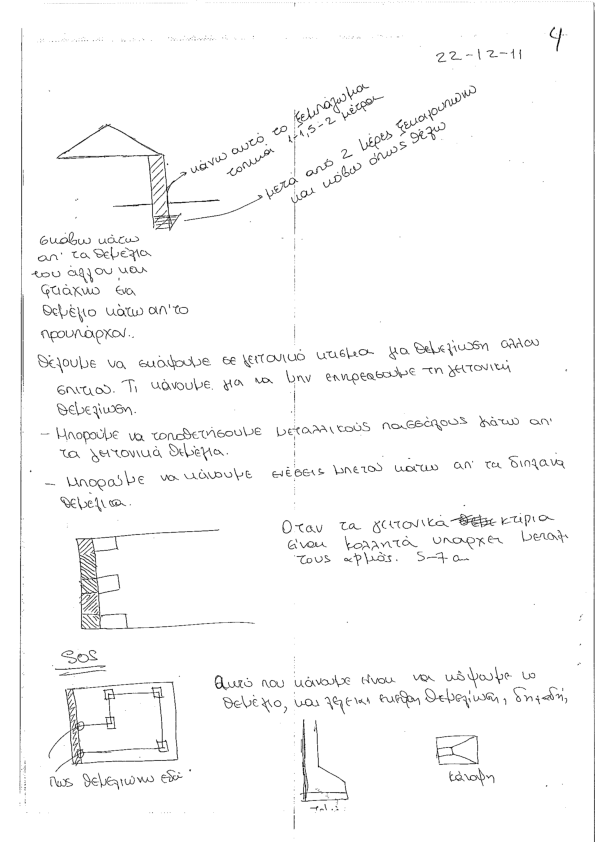 4
22-12-11
κάνω αυτό το ξεμπάζωμα
τοπικά 1-1,5-2 μέτρα
μετά από 2 μέρες ξεκαλουπώνω
και κόβω όπως θέλω
σκάβω κάτω
απ' τα θεμέλια
του άλλου και
φτιάχνω ένα
θεμέλιο κάτω απ' το
προυπάρχον..
Θέλουμε να σκάψουμε σε γειτονικό κτίσμα για θεμελίωση άλλου
σπιτιού. Τι κάνουμε για να μην επηρεάσουμε τη γειτονική
θεμελίωση.
- Μπορούμε να τοποθετήσουμε μεταλλικούς πασσάλους κάτω απ'
τα γειτονικά θεμέλια.
- Μπορούμε να κάνουμε ενέσεις μπετού κάτω απ' τα διπλανά
θεμέλια.
Όταν τα γειτονικά κτίρια
είναι κολλητά υπάρχει μεταξύ
τους αρμός. 5-7
SOS
Αυτό που κάνουμε είναι να κόψουμε το
θεμέλιο, και λέγεται έκκεντρη θεμελίωση, δηλαδή,
Πως θεμελιώνω εδώ
τομή
κάτοψη